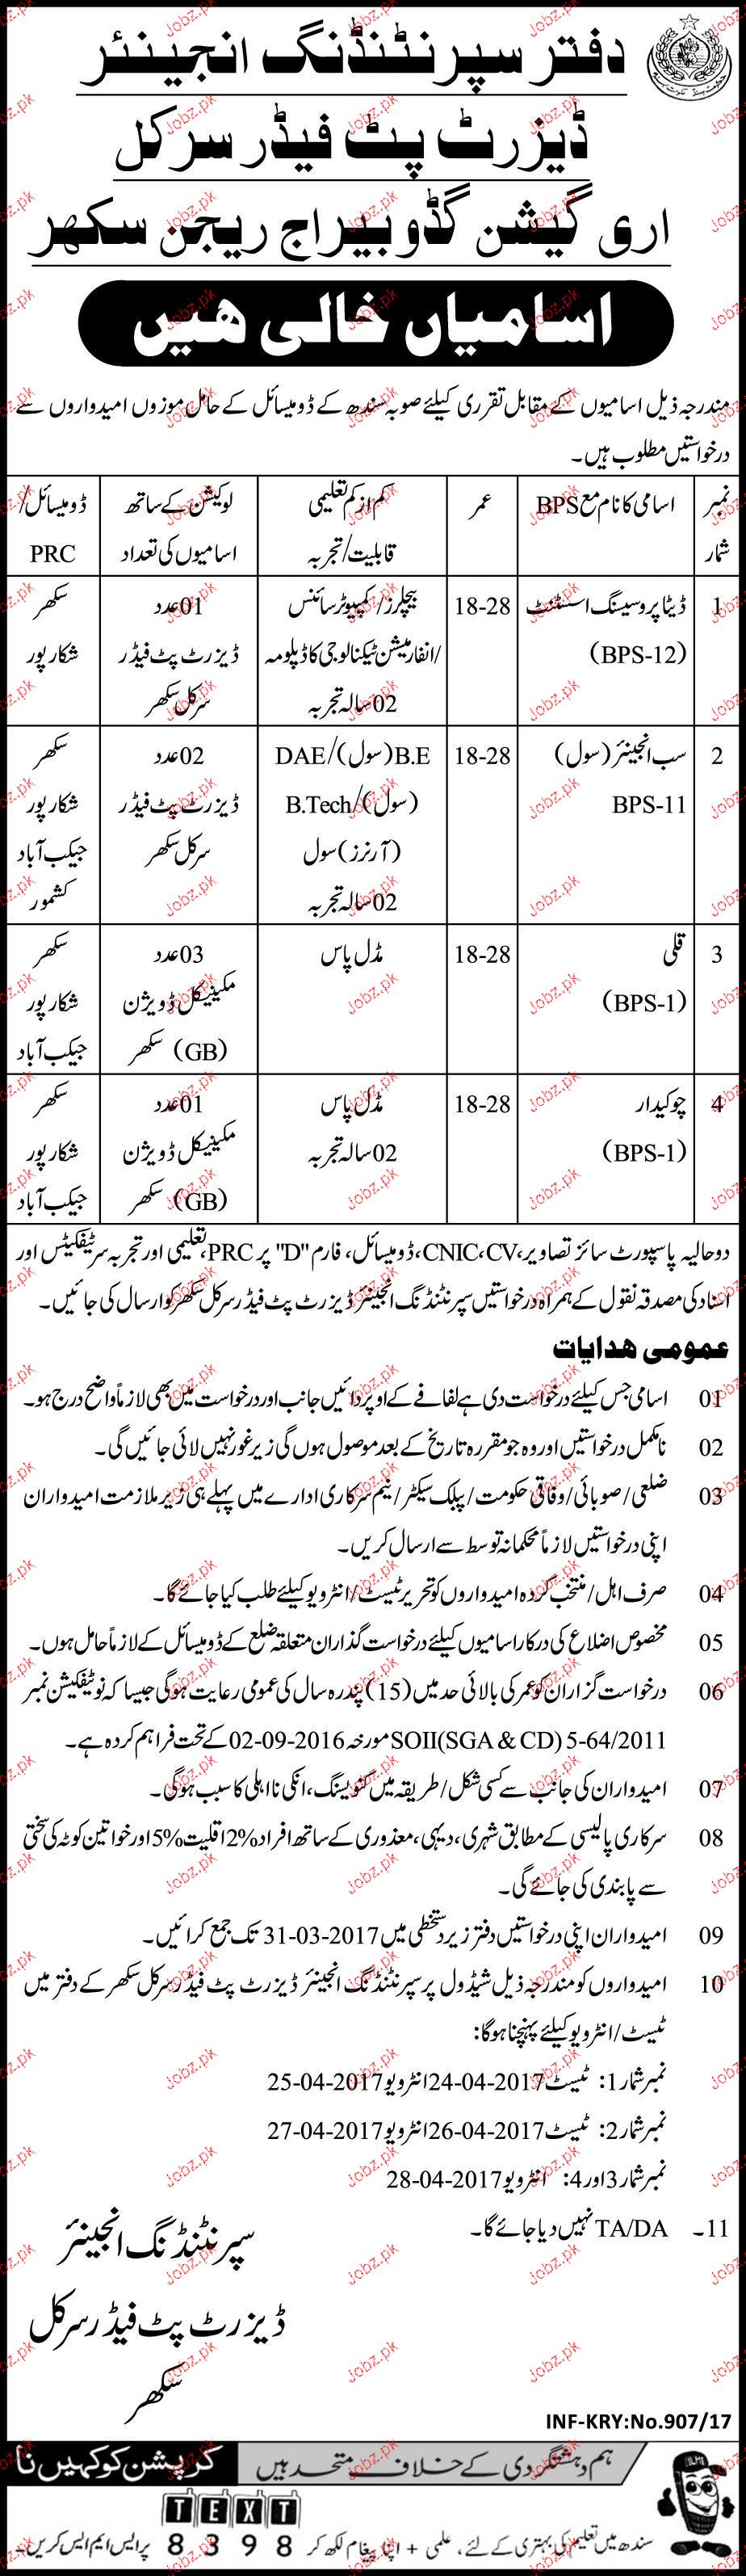 دفتر سپرنٹنڈنگ انجینئر
ڈیزرٹ پٹ فیڈر سرکل
اری گیشن گڈو بیراج ریجن سکھر
اسامیاں خالی ھیں
مندرجہ ذیل اسامیوں کے مقابل تقرری کیلئے صوبہ سندھ کے ڈومیسائل کے حامل موزوں امیدواروں سے
درخواستیں مطلوب ہیں۔
نمبر شمار
اسامی کا نام مع BPS
عمر
کم از کم تعلیمی
قابلیت/تجربہ
لوکیشن کے ساتھ
اسامیوں کی تعداد
ڈومیسائل/
PRC
1
ڈیٹا پروسیسنگ اسسٹنٹ
(BPS-12)
18-28
بیچلرز/کمپیوٹر سائنس
/انفارمیشن ٹیکنالوجی کا ڈپلومہ
02 سالہ تجربہ
01 عدد
ڈیزرٹ پٹ فیڈر
سرکل سکھر
سکھر
شکارپور
2
سب انجینئر (سول)
BPS-11
18-28
B.E (سول)/DAE
(سول)/B.Tech
(آرنرز) سول
02 سالہ تجربہ
02 عدد
ڈیزرٹ پٹ فیڈر
سرکل سکھر
سکھر
شکارپور
جیکب آباد
کشمور
3
قلی
(BPS-1)
18-28
مڈل پاس
03 عدد
مکینیکل ڈویژن
(GB) سکھر
سکھر
شکارپور
جیکب آباد
4
چوکیدار
(BPS-1)
18-28
مڈل پاس
02 سالہ تجربہ
01 عدد
مکینیکل ڈویژن
(GB) سکھر
سکھر
شکارپور
جیکب آباد
دو حالیہ پاسپورٹ سائز تصاویر، CNIC،CV، ڈومیسائل، فارم "D" پر PRC، تعلیمی اور تجربہ سرٹیفکیٹس اور
اسناد کی مصدقہ نقول کے ہمراہ درخواستیں سپرنٹنڈنگ انجینئر ڈیزرٹ پٹ فیڈر سرکل سکھر کو ارسال کی جائیں۔
عمومی ھدایات
01 اسامی جس کیلئے درخواست دی ہے لفافے کے اوپر دائیں جانب اور درخواست میں بھی لازماً واضح درج ہو۔
02 نامکمل درخواستیں اور وہ جو مقررہ تاریخ کے بعد موصول ہوں گی زیر غور نہیں لائی جائیں گی۔
03 ضلعی/صوبائی/وفاقی حکومت/پبلک سیکٹر/نیم سرکاری ادارے میں پہلے ہی زیر ملازمت امیدواران
اپنی درخواستیں لازماً محکمانہ توسط سے ارسال کریں۔
04 صرف اہل/منتخب کردہ امیدواروں کو تحریر ٹیسٹ/انٹرویو کیلئے طلب کیا جائے گا۔
05 مخصوص اضلاع کی درکار اسامیوں کیلئے درخواست گذاران متعلقہ ضلع کے ڈومیسائل کے لازماً حامل ہوں۔
06 درخواست گزاران کو عمر کی بالائی حد میں (15) پندرہ سال کی عمومی رعایت ہوگی جیسا کہ نوٹیفکیشن نمبر
SOII(SGA & CD) 5-64/2011 مورخہ 02-09-2016 کے تحت فراہم کردہ ہے۔
07 امیدواران کی جانب سے کسی شکل/طریقہ میں کنویسنگ، انکی نااہلی کا سبب ہوگی۔
08 سرکاری پالیسی کے مطابق شہری، دیہی، معذوری کے ساتھ افراد 2% اقلیت 5% اور خواتین کوٹہ کی سختی
سے پابندی کی جائے گی۔
09 امیدواران اپنی درخواستیں دفتر زیر دستخطی میں 31-03-2017 تک جمع کرائیں۔
10 امیدواروں کو مندرجہ ذیل شیڈول پر سپرنٹنڈنگ انجینئر ڈیزرٹ پٹ فیڈر سرکل سکھر کے دفتر میں
ٹیسٹ/انٹرویو کیلئے پہنچنا ہوگا:
نمبر شمار 1: ٹیسٹ 24-04-2017 انٹرویو 25-04-2017
نمبر شمار 2: ٹیسٹ 26-04-2017 انٹرویو 27-04-2017
نمبر شمار 3 اور 4: انٹرویو 28-04-2017
11۔ TA/DA نہیں دیا جائے گا۔
سپرنٹنڈنگ انجینئر
ڈیزرٹ پٹ فیڈر سرکل
سکھر
INF-KRY:No.907/17
ہم دہشتگردی کے خلاف متحد ہیں
کرپشن کو کہیں نا
TEXT
سندھ میں تعلیم کی بہتری کے لئے، علمی + اپنا پیغام لکھ کر 8398 پر ایس ایم ایس کریں۔
ILMI
Jobz.pk